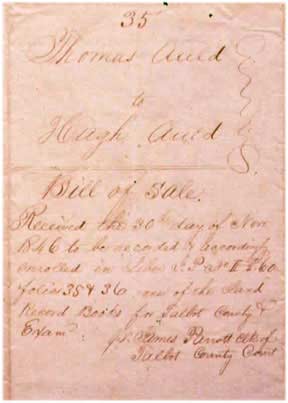 35
Thomas Auld
to
Hugh Auld
Bill of Sale.
Received the 30th day of Nov
1846 to be recorded & accordingly
enrolled in Liber
folios 35 & 36 one of the Land
Record Books for Talbot County &
Exam
James Parrott Clk of
Talbot County Court